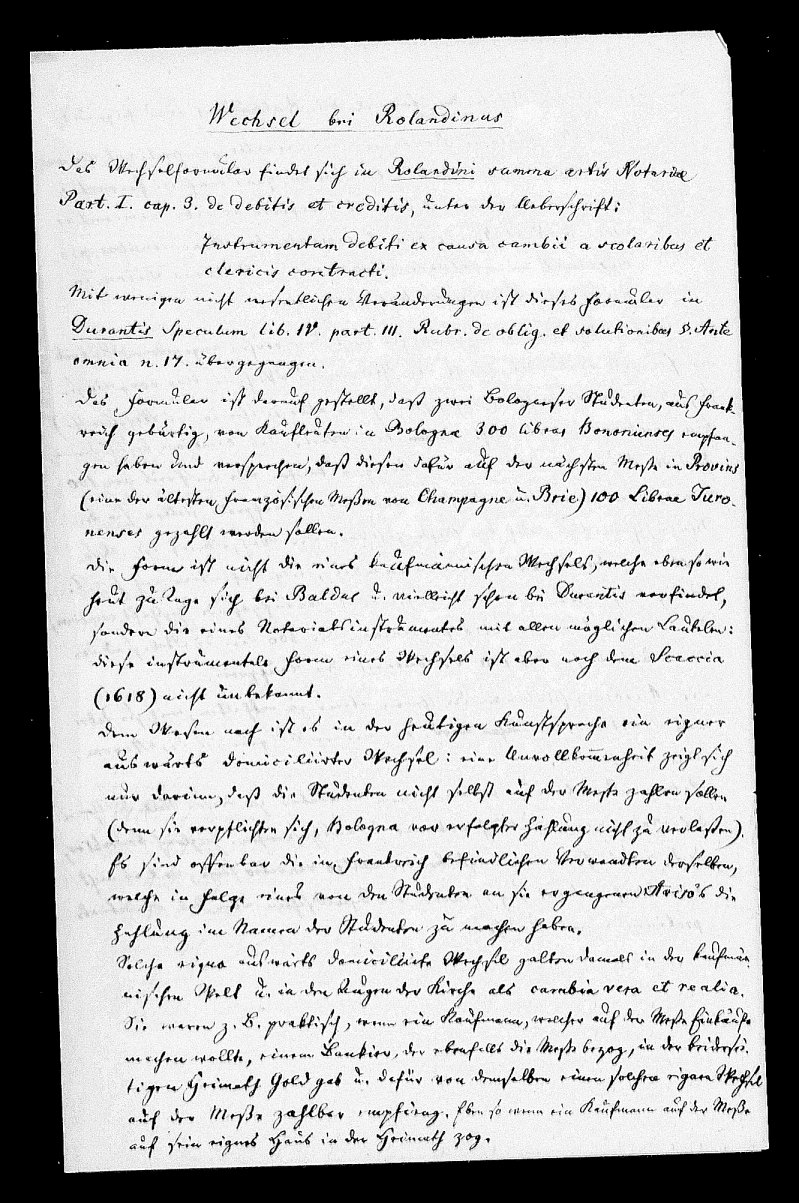 Wechsel bei Rolandinus
Das Wechselformular findet sich in Rolandini summa artis Notariae
Part. I. cap. 3. de debitis et creditis, unter der Ueberschrift:
Instrumentum debiti ex causa cambii a scolaribus et
clericis contracti.
Mit wenigen nicht wesentlichen Veränderungen ist dieses Formular in
Durantis Speculum lib. IV. part. III. Rubr. de oblig. et solutionibus §. Ante
omnia n. 17. übergegangen.
Das Formular ist darauf gestellt, daß zwei Bologneser Studenten, aus Frank-
reich gebürtig, von Kaufleuten in Bologna 300 libras Bononienses empfan-
gen haben und versprechen, daß diesen dafür auf der nächsten Messe in Provins
(einer der ältesten französischen Meßen von Champagne u. Brie) 100 Librae Turo-
nenses gezahlt werden sollen.
Die Form ist nicht die eines kaufmännischen Wechsels, welche ebenso wie
heut zu Tage sich bei Baldus u. vielleicht schon bei Durantis vorfindet,
sondern die eines Notariatsinstrumentes mit allen möglichen Cautelen:
diese instrumentale Form eines Wechsels ist aber nach dem Scaccia
(1618) nicht unbekannt.
Dem Wesen nach ist es in der heutigen Kunstsprache ein eigner
auswärts domiciliirter Wechsel: eine Unvollkommenheit zeigt sich
nur darinn, daß die Studenten nicht selbst auf der Messe zahlen sollen
(denn sie verpflichten sich, Bologna vor erfolgter Zahlung nicht zu verlassen).
Es sind offenbar die in Frankreich befindlichen Verwandten derselben,
welche in Folge eines von den Studenten an sie ergangenen Aviso's die
Zahlung im Namen der Studenten zu machen haben.
Solche eigne auswärts domiciliirte Wechsel galten damals in der kaufmän-
nischen Welt u. in den Augen der Kirche als cambia vera et realia.
Sie waren z. B. praktisch, wenn ein Kaufmann, welcher auf der Messe Einkäufe
machen wollte, einem Bankier, der ebenfalls die Messe bezog, in der beidersei-
tigen Heimath Geld gab u. dafür von demselben einen solchen eigenen Wechsel
auf der Meße zahlbar empfieng. Eben so wenn ein Kaufmann auf der Meße
auf sein eignes Haus in der Heimath zog.